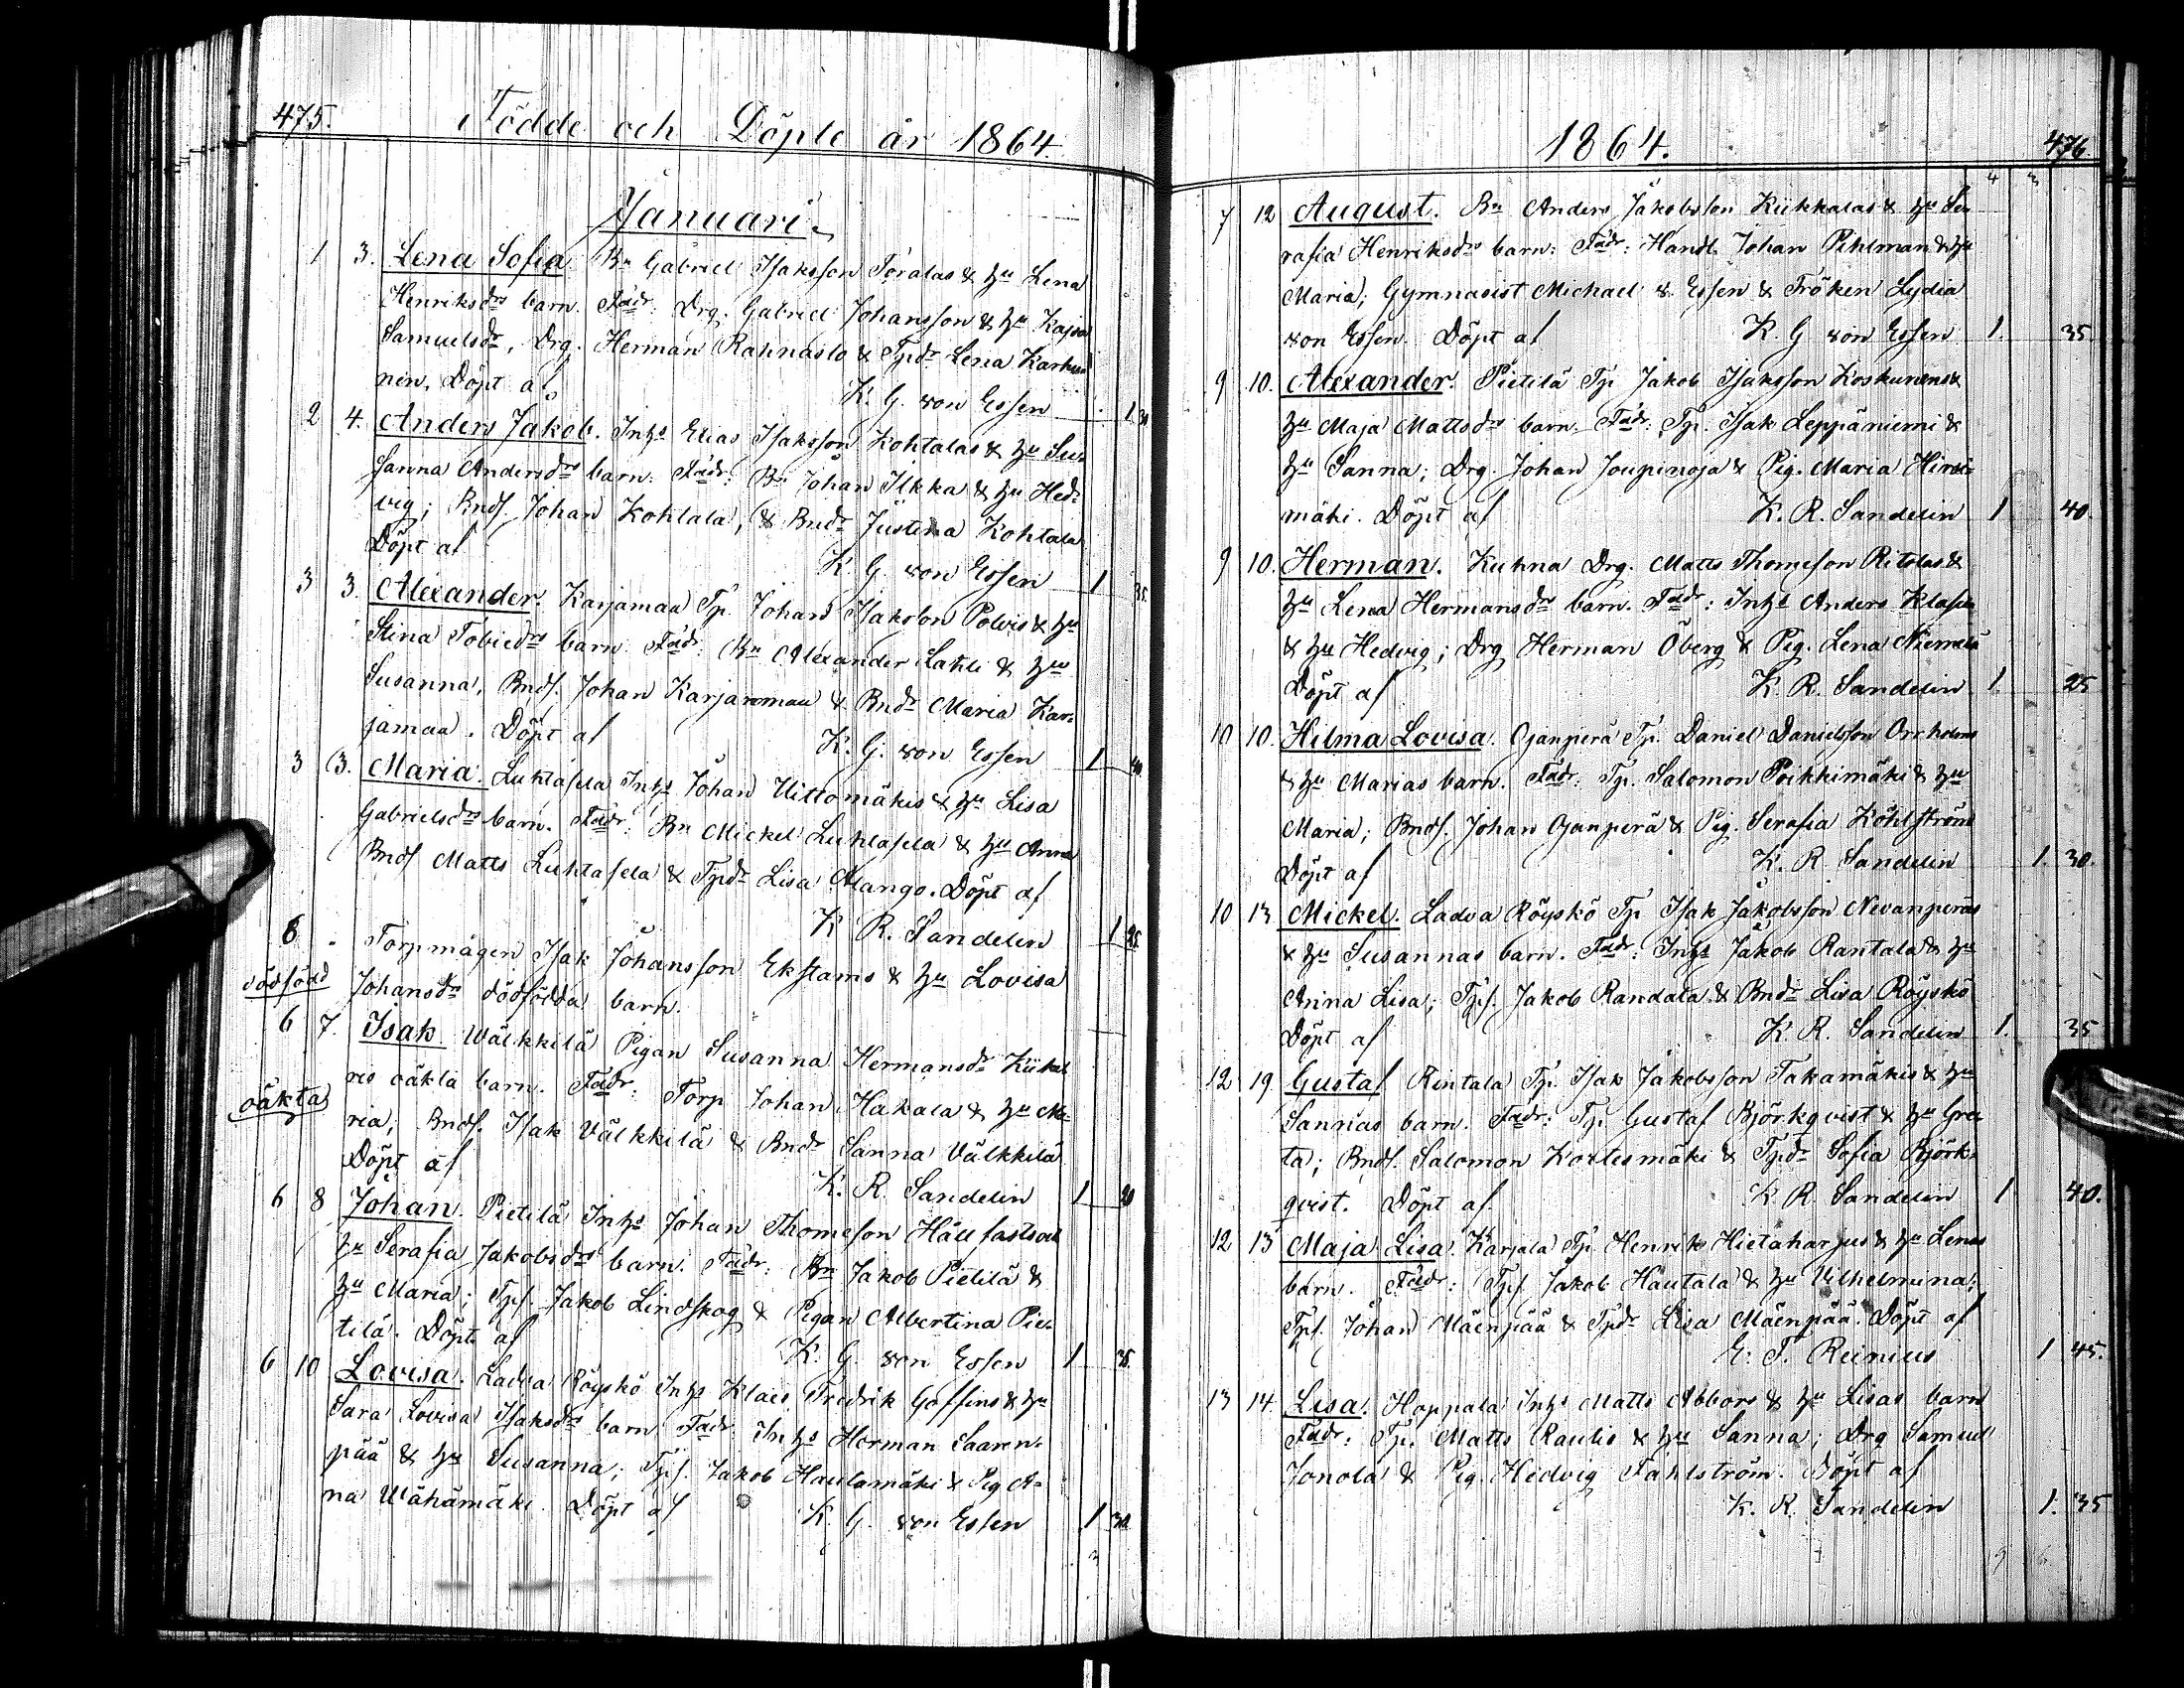 475. Födde och Döpte år 1864.
Januari
1 3. Lena Sofia. Bn Gabriel Isaksson Toralas & hu Lena
Henriksdrs barn. Fadr: Drg. Gabriel Johansson & hu Kajsa
Samuelsdr, Drg. Herman Rahnasto & Tpdr Lena Karhu-
nen. Döpt af K. G. von Essen 1 30
2 4. Anders Jakob. Inhs Elias Isaksson Kohtalas & hu Su-
sanna Andersdrs barn. Fadr: Bn Johan Ilkka & hu Hed-
vig; Bnds. Johan Kohtala, & Bndr Justina Kohtala
Döpt af K. G. von Essen 1 35.
3 3. Alexander. Karjamaa Tp. Johan Isakson Polvis & hu
Stina Tobiedrs barn. Fadr: Bn Alexander Lahti & hu
Susanna, Bnds. Johan Karjanmaa & Bndr Maria Kar-
jamaa. Döpt af K. G. von Essen 1 40
3 3. Maria. Luhtasela Inhs Johan Uittomäkis & hu Lisa
Gabrielsdrs barn. Fadr: Bn Mickel Luhtasela & hu Anna
Bnds Matts Luhtasela & Tpdr Lisa Alango. Döpt af
K. R. Sandelin 1 25.
8 " Torpmågen Isak Johansson Ekstams & hu Lovisa
dödfödd Johansdrs dödfödda barn.
6 7. Isak. Wälkkilä Pigan Susanna Hermansdr
res oäkta barn. Fadr: Torp Johan Hakala & hu Ma-
oäkta ria; Bnds. Isak Välkkilä & Bndr Sanna Välkkilä
Döpt af K. R. Sandelin 1 20
6 8 Johan. Pietilä Inhs Johan Thomeson Hällfasts och
hu Serafia Jakobsdrs barn. Fadr: Bn Jakob Pietilä &
hu Maria; Tps. Jakob Lindskog & Pigan Albertina Pie-
tilä. Döpt af K. G. von Essen 1 35.
6 10 Lovisa. Ladva Röyskö Inhs Klaes Fredrik Goffins & hu
Sara Lovisa Isaksdrs barn. Fadr: Inhs Herman Saaren-
pää & hu Susanna; Tps. Jakob Hautamäki & Pig An-
na Wähämäki. Döpt af K. G. von Essen 1 30.
1864. 476.
7 12 August. Bn Anders Jakobsson Kiikkalas & hu Se-
rafia Henriksdrs barn: Fadr: Handl. Johan Pihlman & hu
Maria; Gymnasist Michael v. Essen & Fröken Lydia
von Essen. Döpt af K. G. von Essen 1. 35
9 10. Alexander. Pietilä Tp. Jakob Isaksson Koskinens &
hu Maja Mattsdrs barn. Fadr: Tp. Isak Leppäniemi &
hu Sanna; Drg. Johan Joupinoja & Pig. Maria Hirsi-
mäki. Döpt af K. R. Sandelin 1 40.
9 10. Herman. Kuhna Drg. Matts Thomeson Ritolas &
hu Lena Hermansdrs barn. Fadr: Inhs Anders
& hu Hedvig; Drg Herman Öberg & Pig. Lena Niemelä
Döpt af K. R. Sandelin 1. 25
10 10. Hilma Lovisa. Ojanperä Tp. Daniel Danielsson Orrholms
& hu Marias barn. Fadr: Tp. Salomon Poikkimäki & hu
Maria; Bnds. Johan Ojanperä & Pig. Serafia Kohlström
Döpt af K. R. Sandelin 1. 30.
10 13 Mickel. Ladva Röyskö Tp Isak Jakobsson Nevanperäs
& hu Susannas barn. Fadr: Inhs Jakob Rantala & hu
Anna Lisa; Tps. Jakob Randala & Bndr Lisa Röyskö
Döpt af K. R. Sandelin 1. 35
12 19 Gustaf Rintala Tp. Isak Jakobsson Takamäkis & hu
Sannas barn. Fadr: Tp. Gustaf Björkqvist & hu Gre-
ta; Bnds. Salomon Kortesmäki & Tpdr Sofia Björk-
qvist. Döpt af. K. R. Sandelin 1 40.
12 13 Maja Lisa. Karjala Tp. Henrik Hietaharjus & hu Lenas
barn. Fadr: Tps. Jakob Hautala & hu Vilhelmina;
Tps. Johan Mäenpää & Tpdr Lisa Mäenpää. Döpt af
E. F. Reinius 1 45.
13 14. Lisa. Hoppala Inhs Matts Abbors & hu Lisas barn
Fadr: Tp. Matts Raulio & hu Sanna; Drg Samuel
Jonola & Pig. Hedvig Fahlström. Döpt af
K. R. Sandelin 1. 35